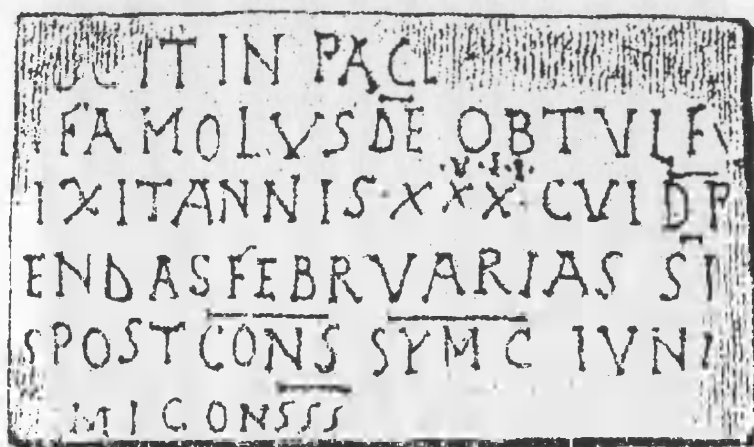 IT IN PAC
FAMOLVS DE OBTVLFV
IXIT ANNIS XXX CVI DP
V I I
ENDAS FEBRVARIAS SI
S POST CONS SYM C IVNI
MI CONSSS